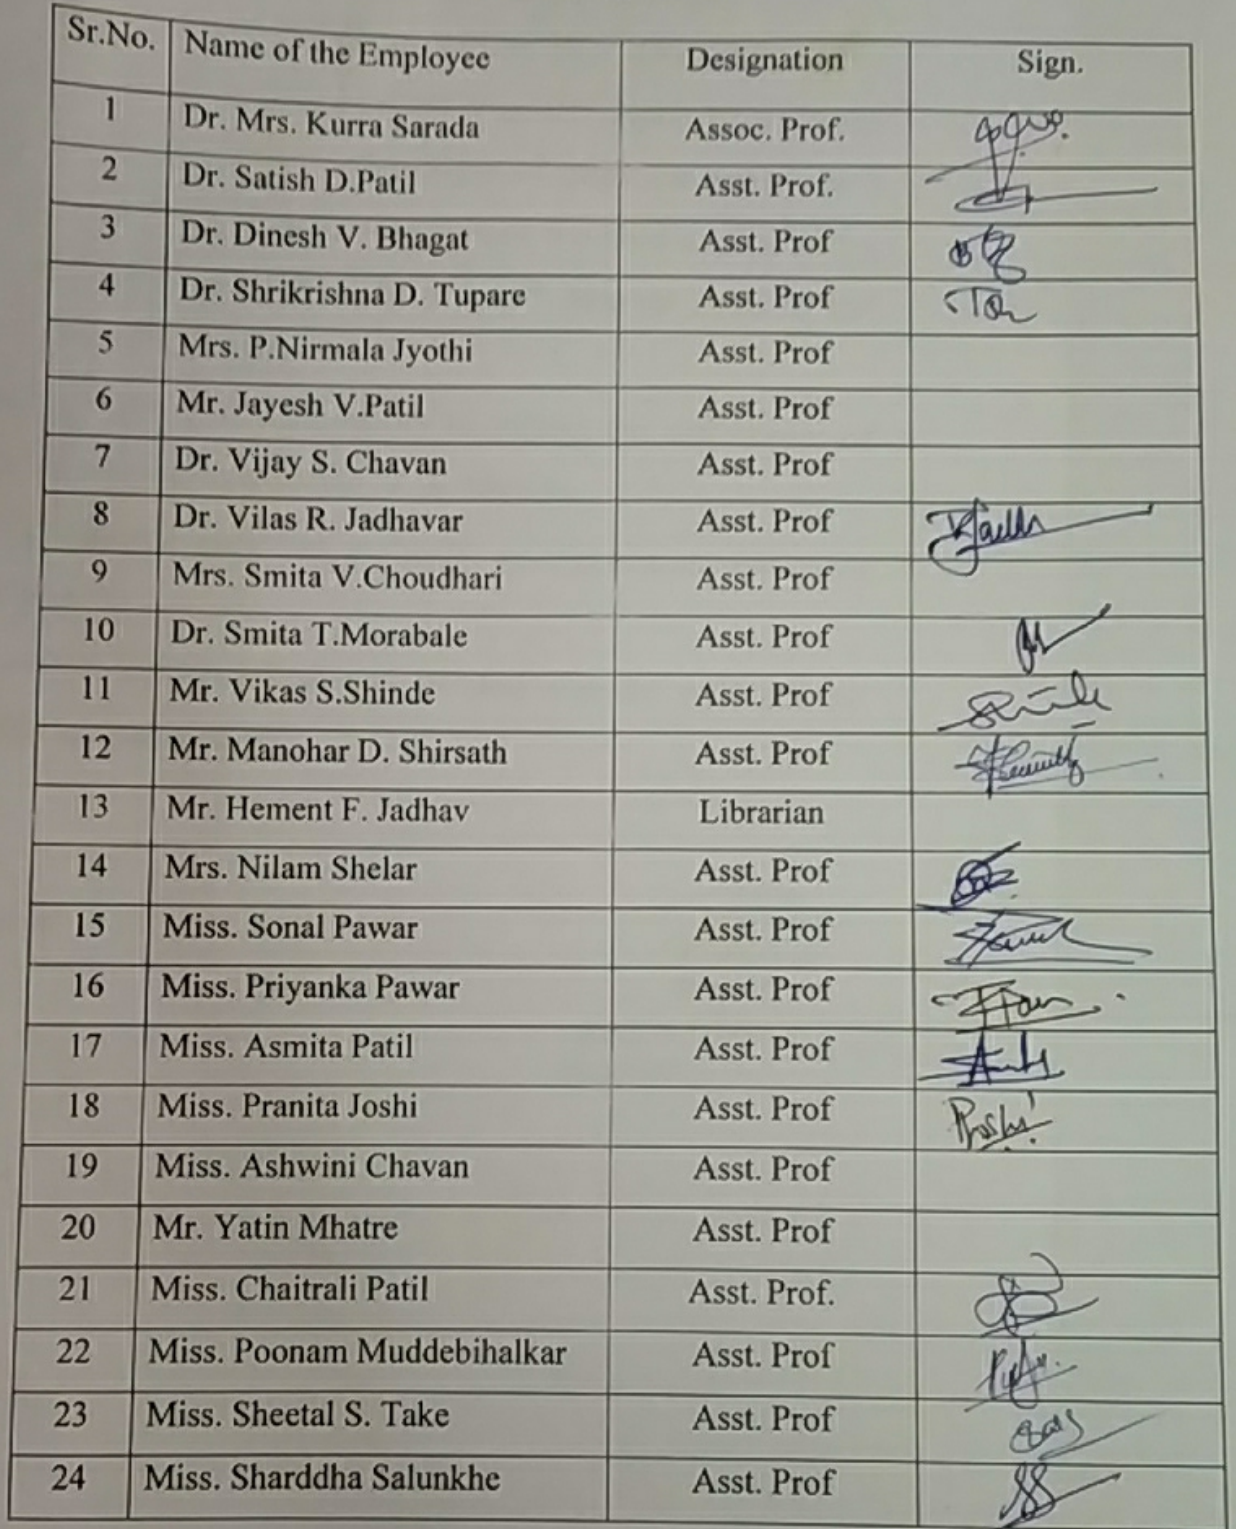 Sr.No. Name of the Employee Designation Sign.
1 Dr. Mrs. Kurra Sarada Assoc. Prof.
2 Dr. Satish D.Patil Asst. Prof.
3 Dr. Dinesh V. Bhagat Asst. Prof
4 Dr. Shrikrishna D. Tupare Asst. Prof
5 Mrs. P.Nirmala Jyothi Asst. Prof
6 Mr. Jayesh V.Patil Asst. Prof
7 Dr. Vijay S. Chavan Asst. Prof
8 Dr. Vilas R. Jadhavar Asst. Prof
9 Mrs. Smita V.Choudhari Asst. Prof
10 Dr. Smita T.Morabale Asst. Prof
11 Mr. Vikas S.Shinde Asst. Prof
12 Mr. Manohar D. Shirsath Asst. Prof
13 Mr. Hement F. Jadhav Librarian
14 Mrs. Nilam Shelar Asst. Prof
15 Miss. Sonal Pawar Asst. Prof
16 Miss. Priyanka Pawar Asst. Prof
17 Miss. Asmita Patil Asst. Prof
18 Miss. Pranita Joshi Asst. Prof
19 Miss. Ashwini Chavan Asst. Prof
20 Mr. Yatin Mhatre Asst. Prof
21 Miss. Chaitrali Patil Asst. Prof.
22 Miss. Poonam Muddebihalkar Asst. Prof
23 Miss. Sheetal S. Take Asst. Prof
24 Miss. Sharddha Salunkhe Asst. Prof